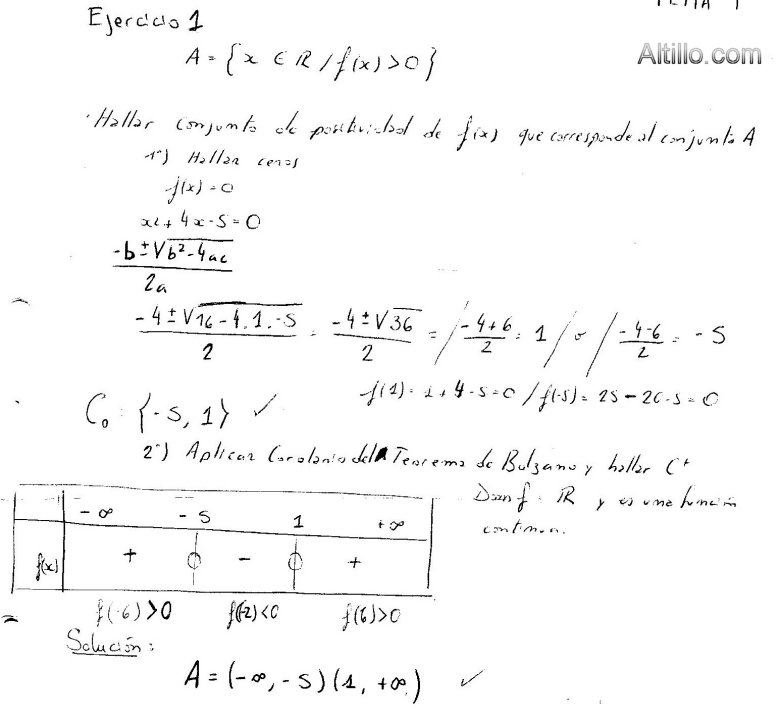 TEMA 1
Altillo.com
Ejercicio 1
A = { x ∈ ℝ / f(x) > 0 }
Hallar conjunto de positividad de f(x) que corresponde al conjunto A
1°) Hallar ceros
f(x) = 0
x² + 4x - 5 = 0
-b ± √b² - 4ac / 2a
-4 ± √16 - 4.1.-5 / 2 = -4 ± √36 / 2 = / -4+6 / 2 = 1 / o / -4-6 / 2 = -5
f(1) = 1 + 4 - 5 = 0 / f(-5) = 25 - 20 - 5 = 0
C₀ : {-5, 1} ✓
2°) Aplicar Corolario del Teorema de Bolzano y hallar C⁺
Dom f = ℝ y es una función
continua.
-∞ -5 1 +∞
f(x) + 0 - 0 +
f(-6) > 0 f(-2) < 0 f(6) > 0
Solución:
A = (-∞, -5) (1, +∞) ✓